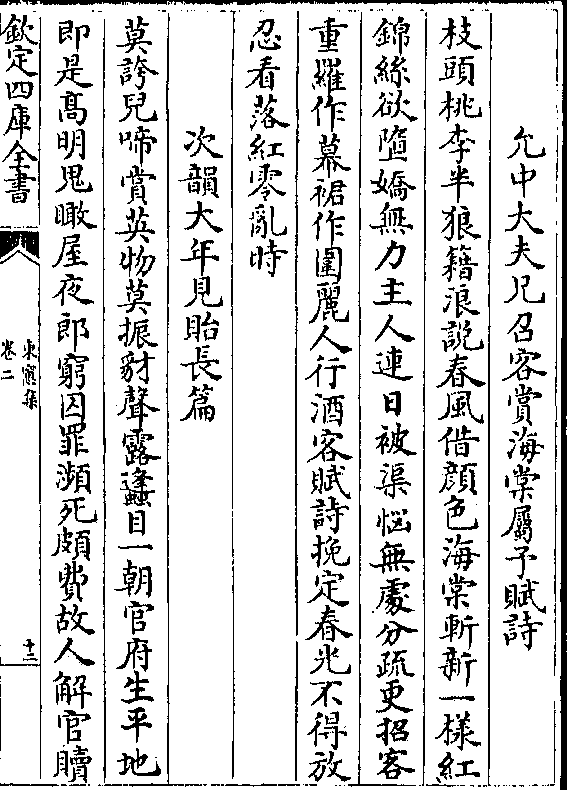 允中大夫兄召客賞海棠屬予賦詩
枝頭桃李半狼籍浪説春風借顔色海棠斬新一樣紅
錦絲欲墮嬌無力主人連日被渠惱無處分疏更招客
重羅作幕裙作圍麗人行酒客賦詩挽定春光不得放
忍看落紅零亂時
次韻大年見貽長篇
莫誇兒啼賞英物莫振豺聲露蠭目一朝官府生平地
即是髙明鬼瞰屋夜郎窮囚罪瀕死頗費故人解官贖
欽定四庫全書
東窻集
卷二
十二